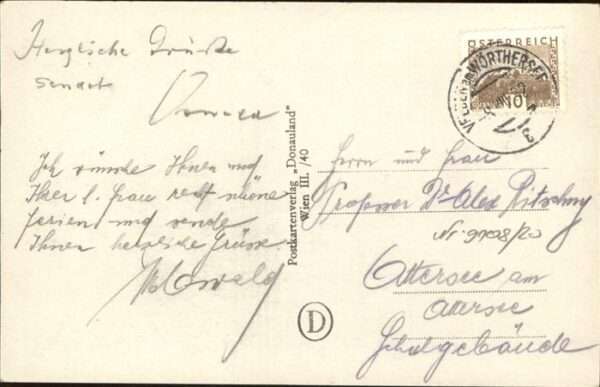 Herzliche Grüße
sendet
Ich wünsche Ihnen und
Ihrer l. Frau recht schöne
Ferien und sende
Ihnen herzliche Grüsse
Oswald
Postkartenverlag „Donauland"
Wien III. /40
D
ÖSTERREICH
10
VELDEN AM WÖRTHERSEE
Herrn und Frau
Professor Dr. Alex
Nr. 9108/20
Attersee am
Attersee
Schulgebäude